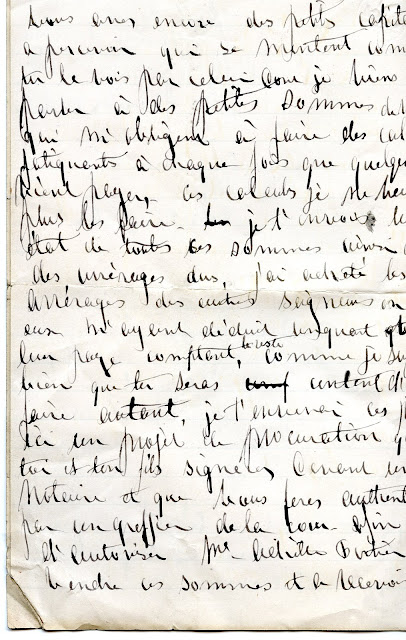 nous avons encore des petits capita
a percevoir qui se montent com
tu le vois par celui dont je viens
parler à des petites sommes de
qui m'obligent à faire des cal
fatiguents à chaque fois que quelqu
vient payer, ces calculs je ne veu
plus les faire. je t'envoie
état de toutes ces sommes ainsi
des arrérages dus, j'ai acheté les
arrérages des autres seigneurs
eux m'ayant déduit un quart
leur paye comptant, le reste comme je su
bien que tu seras content d'
faire autant, je t'enverrai ces
ici un projet de procuration q
toi et ton fils signerez devant un
Notaire et que vous feres authent
par un greffier de la cour afin
d'autoriser Mr
vendre ces sommes et a recevoi